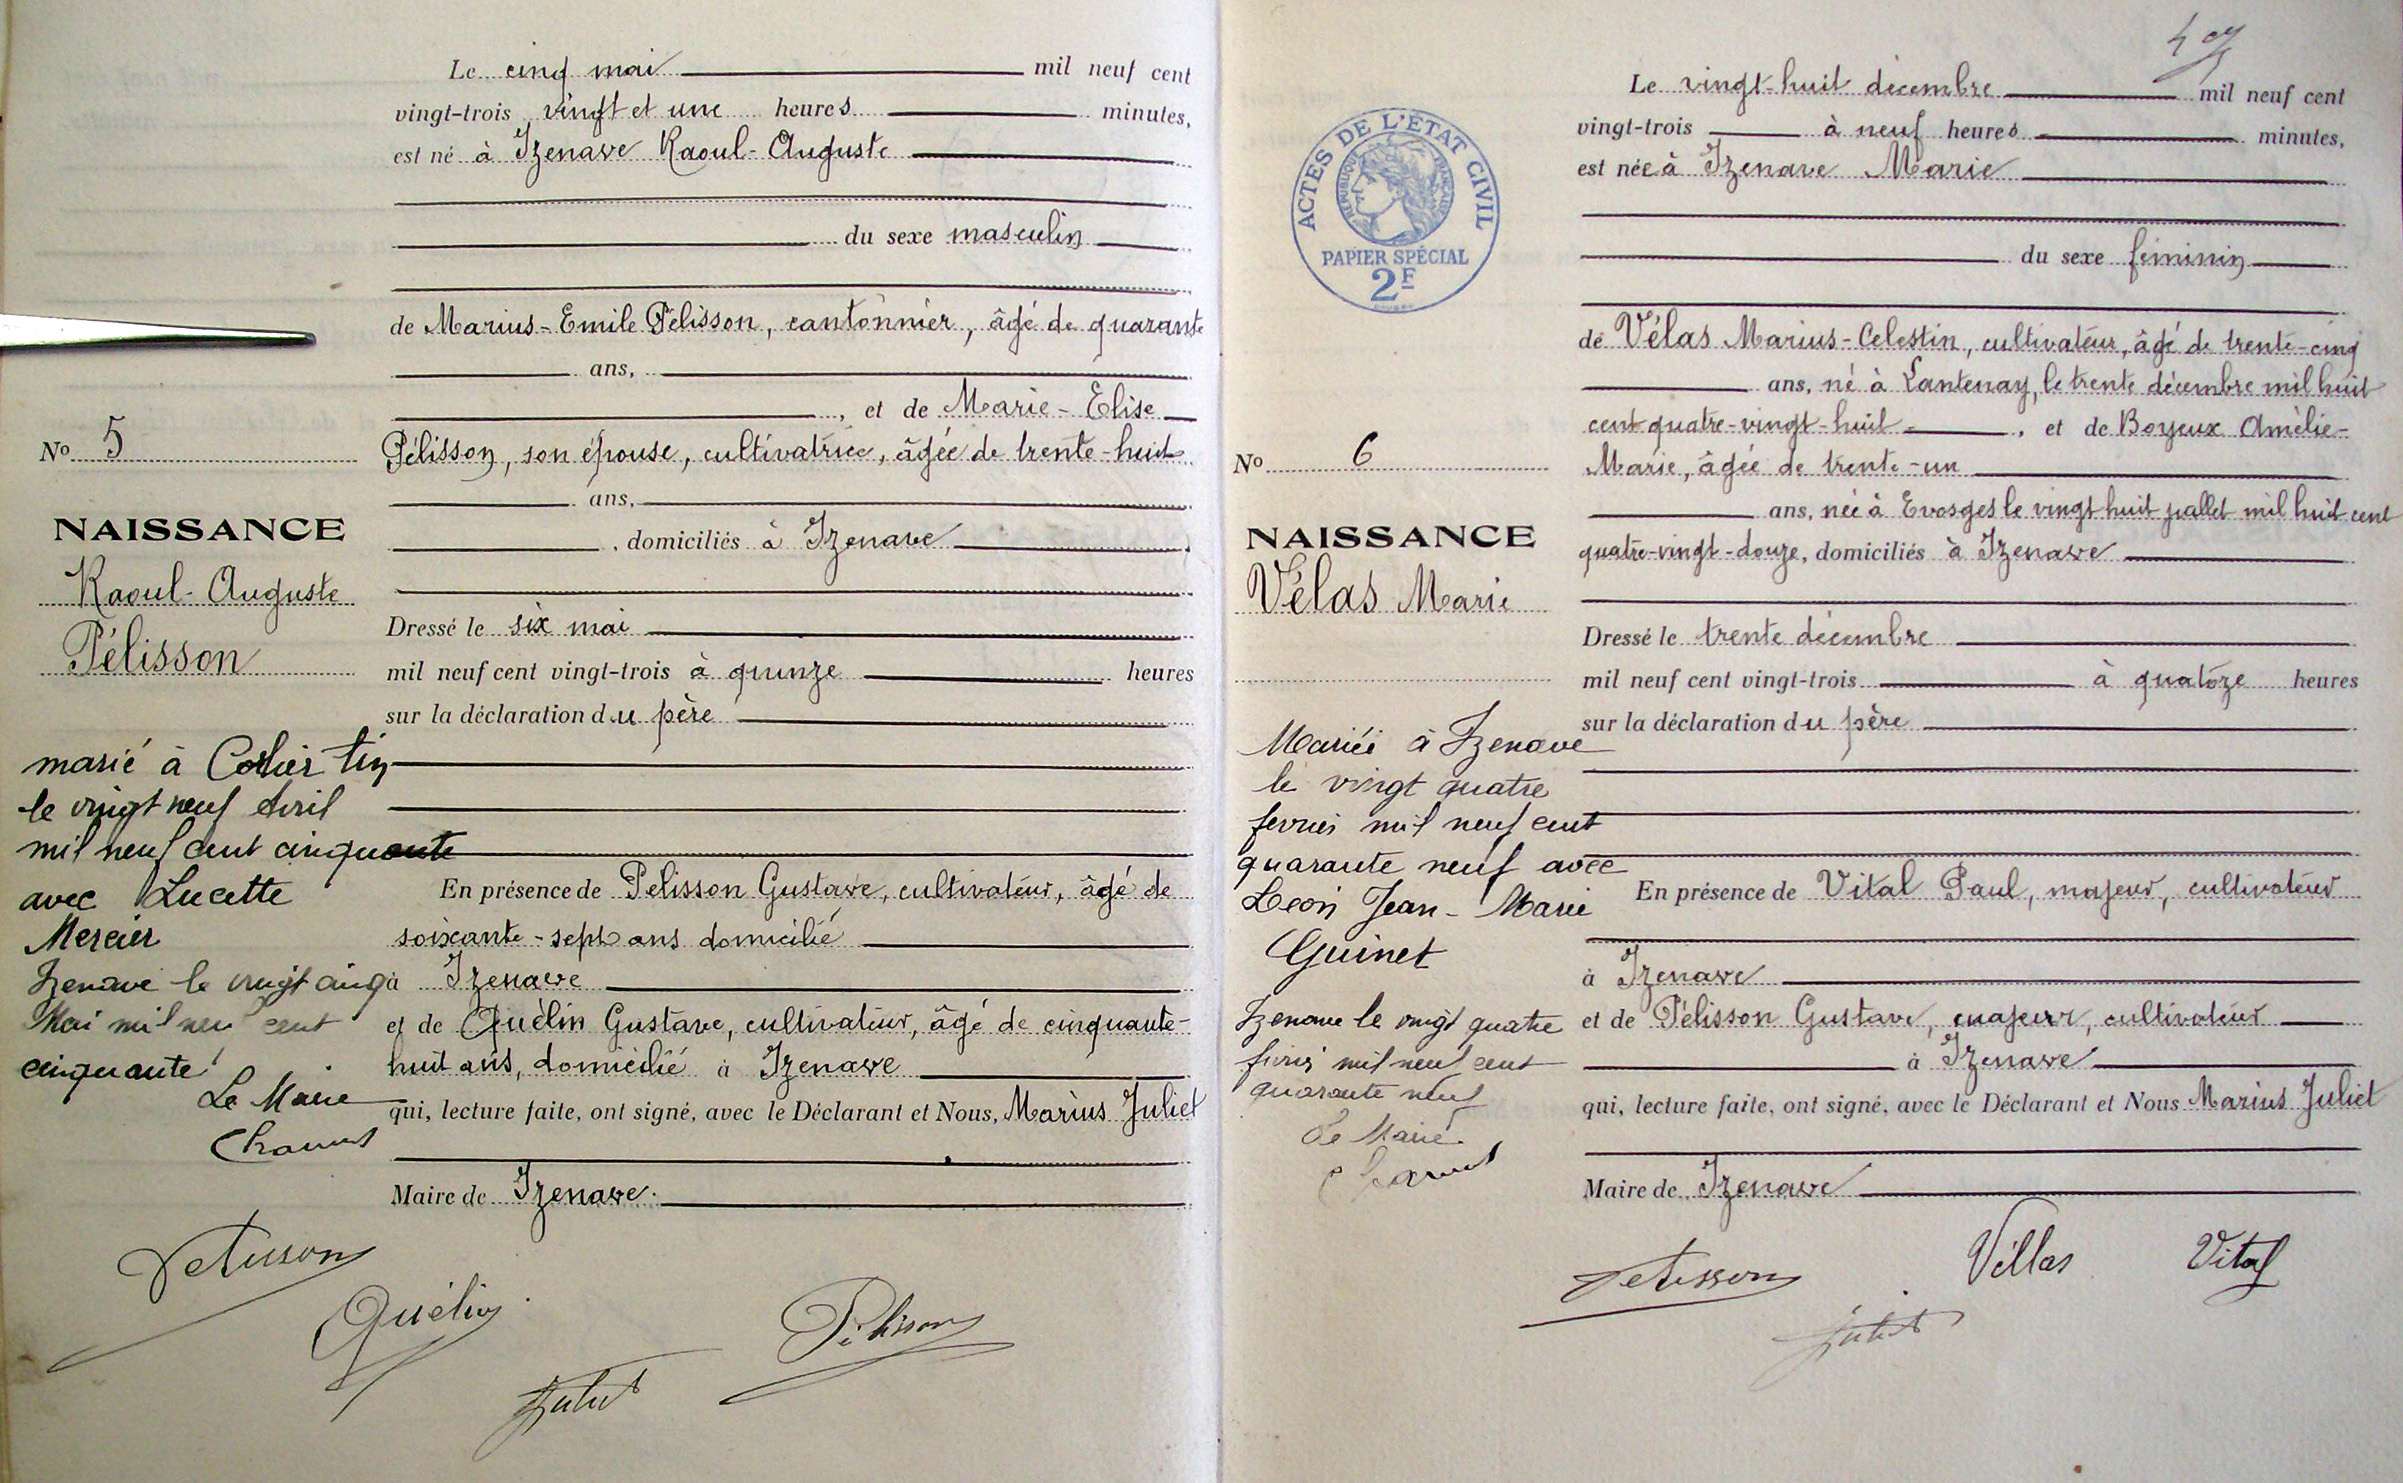 Le cinq mai mil neuf cent
vingt-trois vingt et une heures minutes,
est né à Izenave Raoul-Auguste
du sexe masculin
de Marius-Emile Pélisson, cantonnier, âgé de quarante
ans,
, et de Marie-Elise
Pélisson, son épouse, cultivatrice, âgée de trente-huit
ans,
, domiciliés à Izenave
Dressé le six mai
mil neuf cent vingt-trois à quinze heures
sur la déclaration du père
En présence de Pelisson Gustave, cultivateur, âgé de
soixante-sept ans domicilié
à Izenave
et de Quélin Gustave, cultivateur, âgé de cinquante-
huit ans, domicilié à Izenave
qui, lecture faite, ont signé, avec le Déclarant et Nous, Marius Juliet
Maire de Izenave.
No 5
NAISSANCE
Raoul-Auguste
Pélisson
marié à Corlier
le vingt neuf Avril
mil neuf cent cinquante
avec Lucette
Mercier
Izenave le vingt cinq
Mai mil neuf cent
cinquante
Le Maire
Pelisson
Quélin
Pélisson
Juliet
Le vingt-huit décembre mil neuf cent
vingt-trois à neuf heures minutes,
est née à Izenave Marie
du sexe féminin
de Vélas Marius-Celestin, cultivateur, âgé de trente-cinq
ans, né à Lantenay, le trente décembre mil huit
cent quatre-vingt-huit, et de Boyeux Amélie-
Marie, âgée de trente-un
ans, née à Evosges le vingt huit juillet mil huit cent
quatre-vingt-douze, domiciliés à Izenave
Dressé le trente décembre
mil neuf cent vingt-trois à quatoze heures
sur la déclaration du père
En présence de Vital Paul, majeur, cultivateur
à Izenave
et de Pélisson Gustave, majeur, cultivateur
à Izenave
qui, lecture faite, ont signé, avec le Déclarant et Nous Marius Juliet
Maire de Izenave
ACTES DE L'ÉTAT CIVIL
RÉPUBLIQUE FRANÇAISE
PAPIER SPÉCIAL
2F
No 6
NAISSANCE
Vélas Marie
Mariée à Izenave
le vingt quatre
fevrier mil neuf cent
quarante neuf avec
Léon Jean-Marie
Guinet
Izenave le vingt quatre
fevrier mil neuf cent
quarante neuf
Le Maire
Pelisson
Véllas
Vital
Juliet